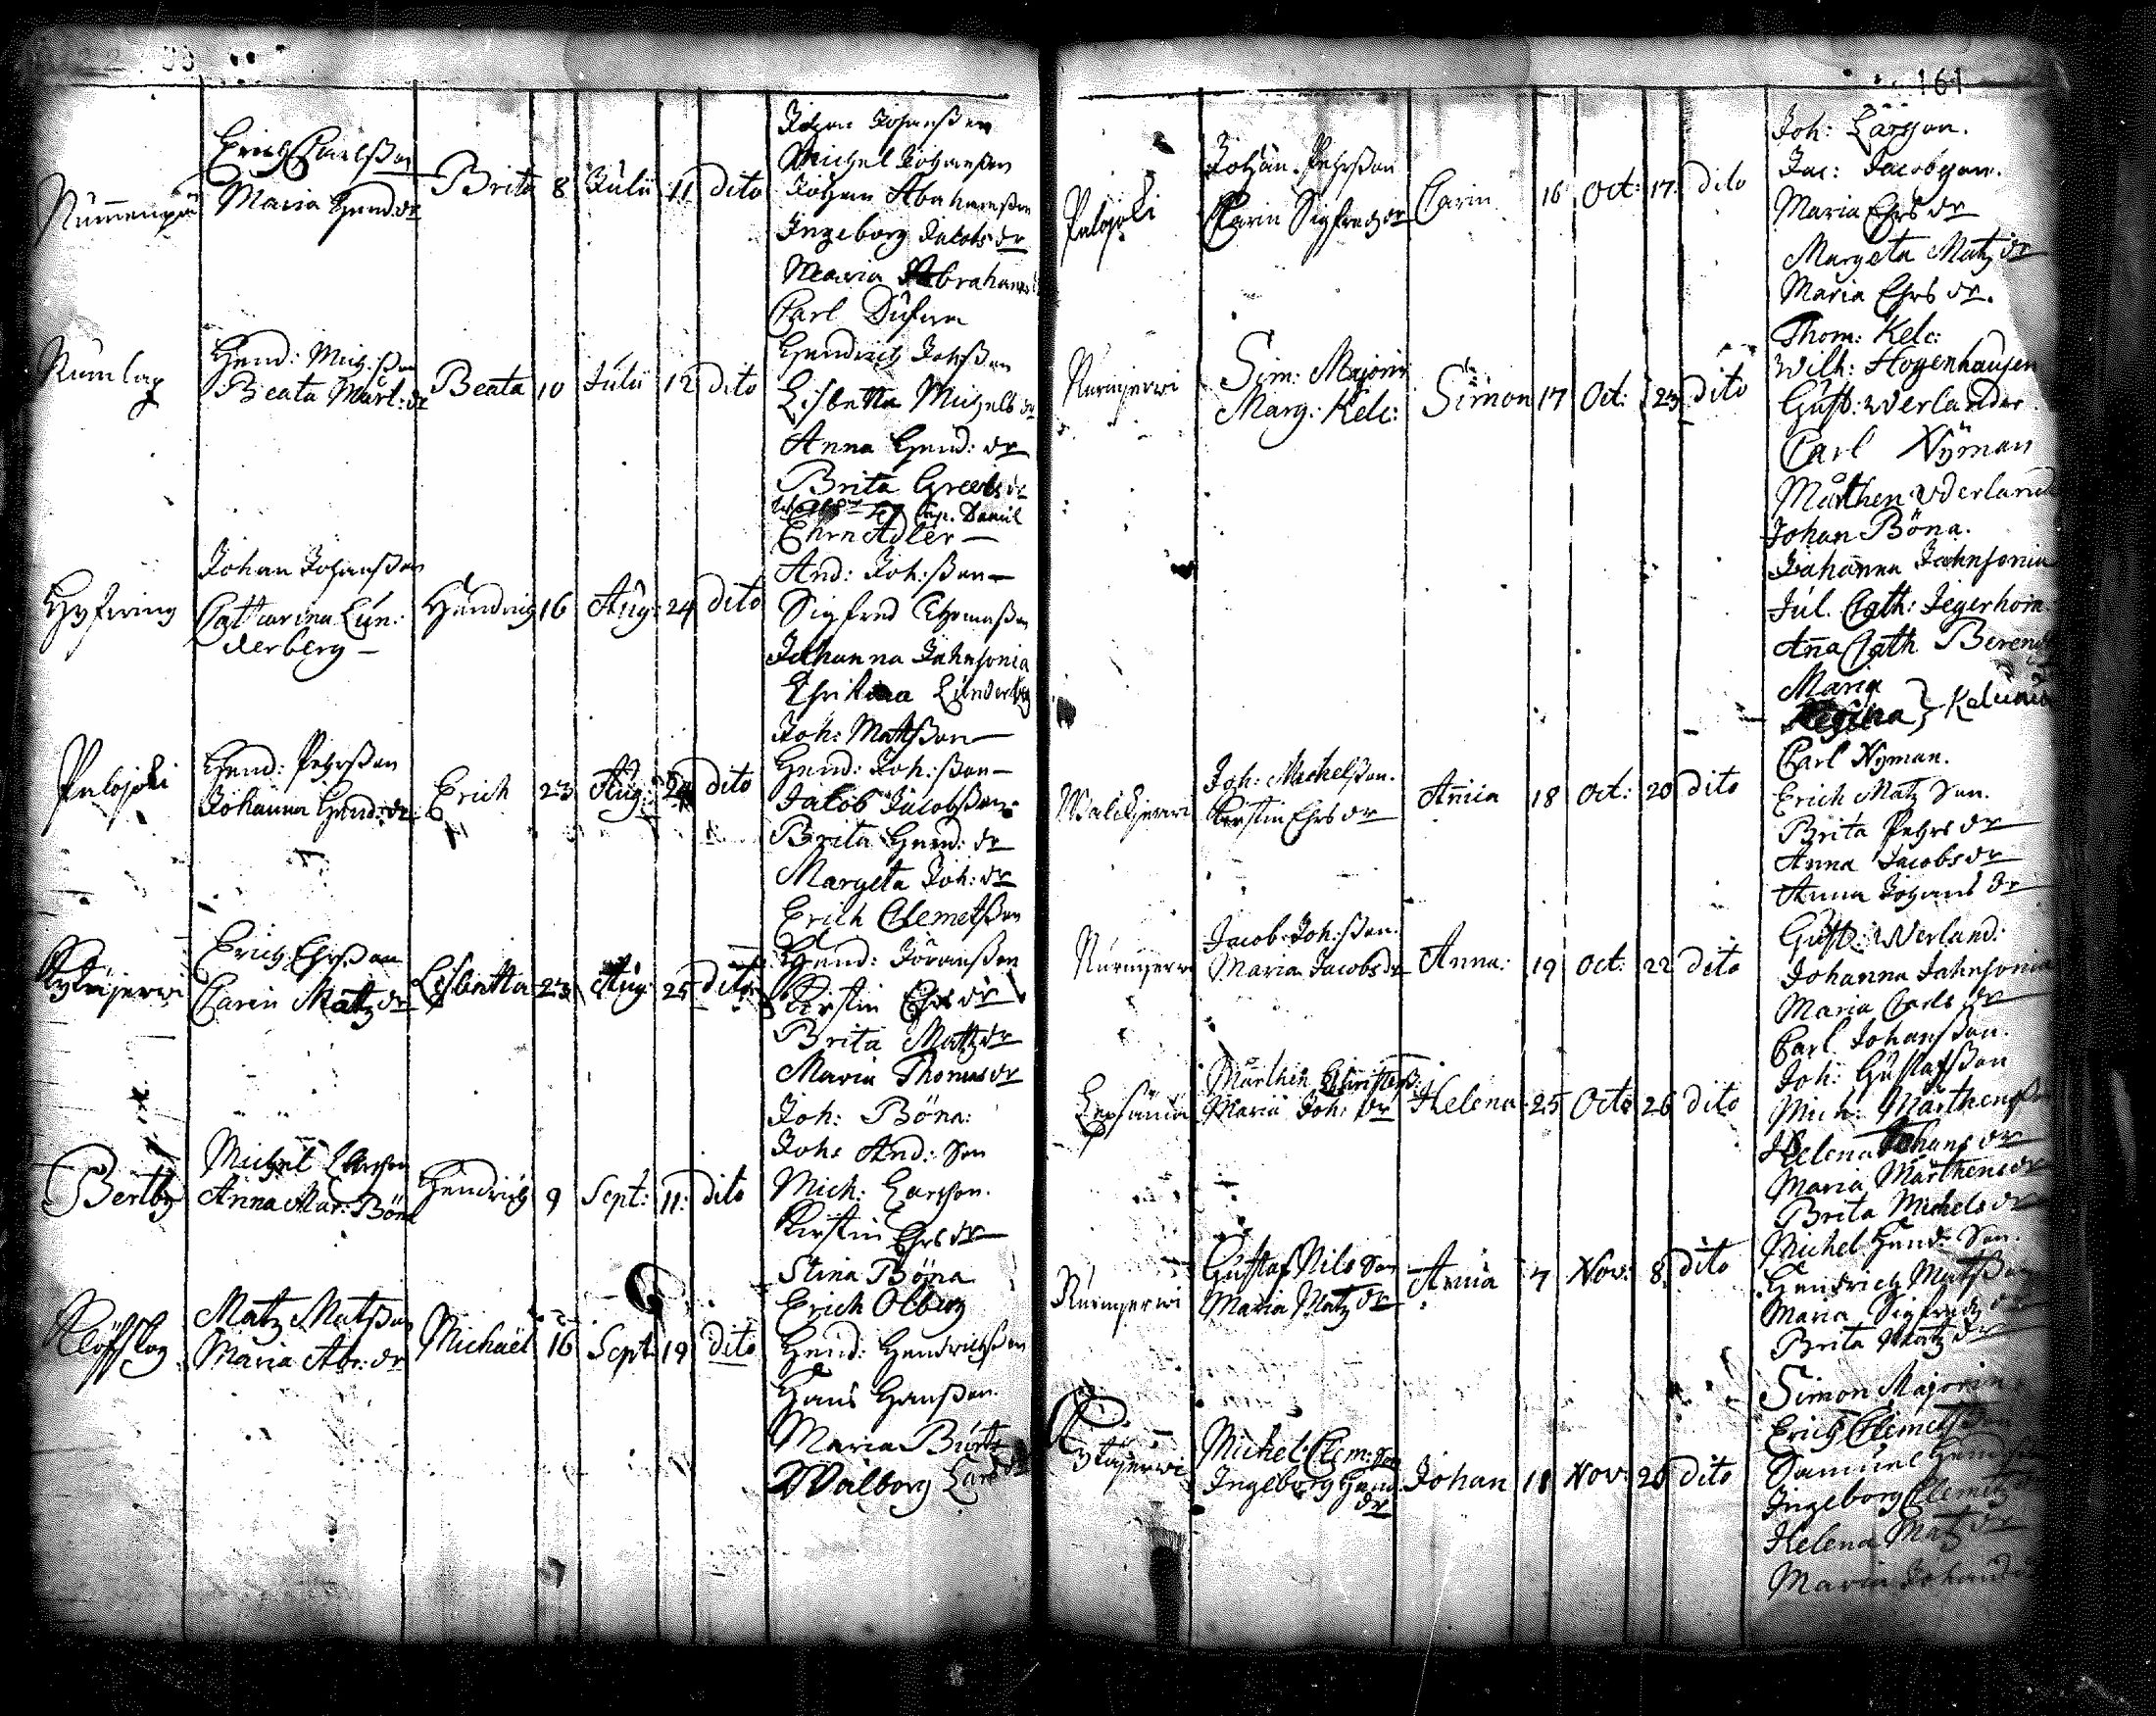 161
Erich Carlßon
Maria Hend:dr
Brita 8 Julii 11 dito
Johan Johanßon
Michel Johanßon
Johan Abrahamßon
Ingeborg Jacobs dr
Maria Abrahams
Carl Dufva
Numlax
Hend: Mich:ßon
Beata Mårt:dr
Beata 10 Julii 12 dito
Hendrich Johßon
Lisbetta Michels dr
Anna Hend: dr
Brita Greels dr
Cap. Daniel
Ehrnadler
Hyfwing
Johan Johanßon
Catharina Lun:
derberg
Hendrich 16 Aug: 24 dito
And: Joh:ßon
Sigfred Thomaßon
Johanna Jahnsonia
Christina Lunderberg
Palojoki
Hend: Pehrßon
Johanna Hend:dr
Erich 23 Aug: 24 dito
Joh: Matßon
Hend: Joh:ßon
Jacob Jacobßon
Brita Hend: dr
Margeta Joh: dr
Kytäjerwi
Erich Ehrßon
Carin Matz dr
Lisbetta 23 Aug: 25 dito
Erich Clemetßon
Hend: Jöranßon
Kirstin Ehrs dr
Brita Matz dr
Maria Thomas dr
Bertby
Michel Larsson
Anna Mar: Böna
Hendrich 9 Sept: 11 dito
Joh: Böna:
Joh: And: Son
Mich: Larsson.
Kirstin Ehrs dr
Stina Böna
Klöfskog
Matz Matßon
Maria Abr: dr
Michael 16 Sept 19 dito
Erich Olberg
Hend: Hendrichßon
Hans Hanßon.
Maria Burtz
Walborg Lars dr
Palojoki
Johan Pehrßon
Carin Sigfredz dr
Carin 16 Oct: 17 dito
Joh: Larsson.
Jac: Jacobsson.
Maria Ehrs dr
Margeta Matz dr
Maria Ehrs dr.
Nurmjerwi
Sim: Majorin
Marg: Kelc:
Simon 17 Oct: 23 dito
Thom: Kelc:
Wilh: Stogenhausen
Gust: Werlander
Carl Nyman
Mårthen Werland
Johan Böna.
Johanna Jahnsonia
Jul. Cath: Jegerhorn
Anna Cath Berend
Maria
Regina } Kelcinia
Walckjerwi
Joh: Michelßon.
Kerstin Ehrs dr
Anna 18 Oct: 20 dito
Carl Nyman.
Erich Matz Son.
Brita Pehrs dr
Anna Jacobs dr
Anna Johans dr
Nurmjerwi
Jacob Joh:ßon.
Maria Jacobs dr
Anna: 19 Oct: 22 dito
Gust: Werland:
Johanna Jahnsonia
Maria Carls dr
Carl Johanßon.
Lepsämä
Mårthin Christerß:
Maria Joh: dr
Helena 25 Octo 26 dito
Joh: Gustafßon
Mich: Mårthensson
Helena Johans dr
Maria Mårthens dr
Brita Michels dr
Nurmjerwi
Gustaf Nils Son
Maria Matz dr
Anna 7 Nov: 8 dito
Michel Hend: Son.
Hendrich Matßon
Maria Sigfredz dr
Brita Matz dr
Kytäjerwi
Michel Clem:son
Ingeborg Hend
dr
Johan 18 Nov: 20 dito
Simon Majorin
Erich Clemetßon
Samuel Hendßon
Ingeborg Clemetz
Helena Matz dr
Maria Johans